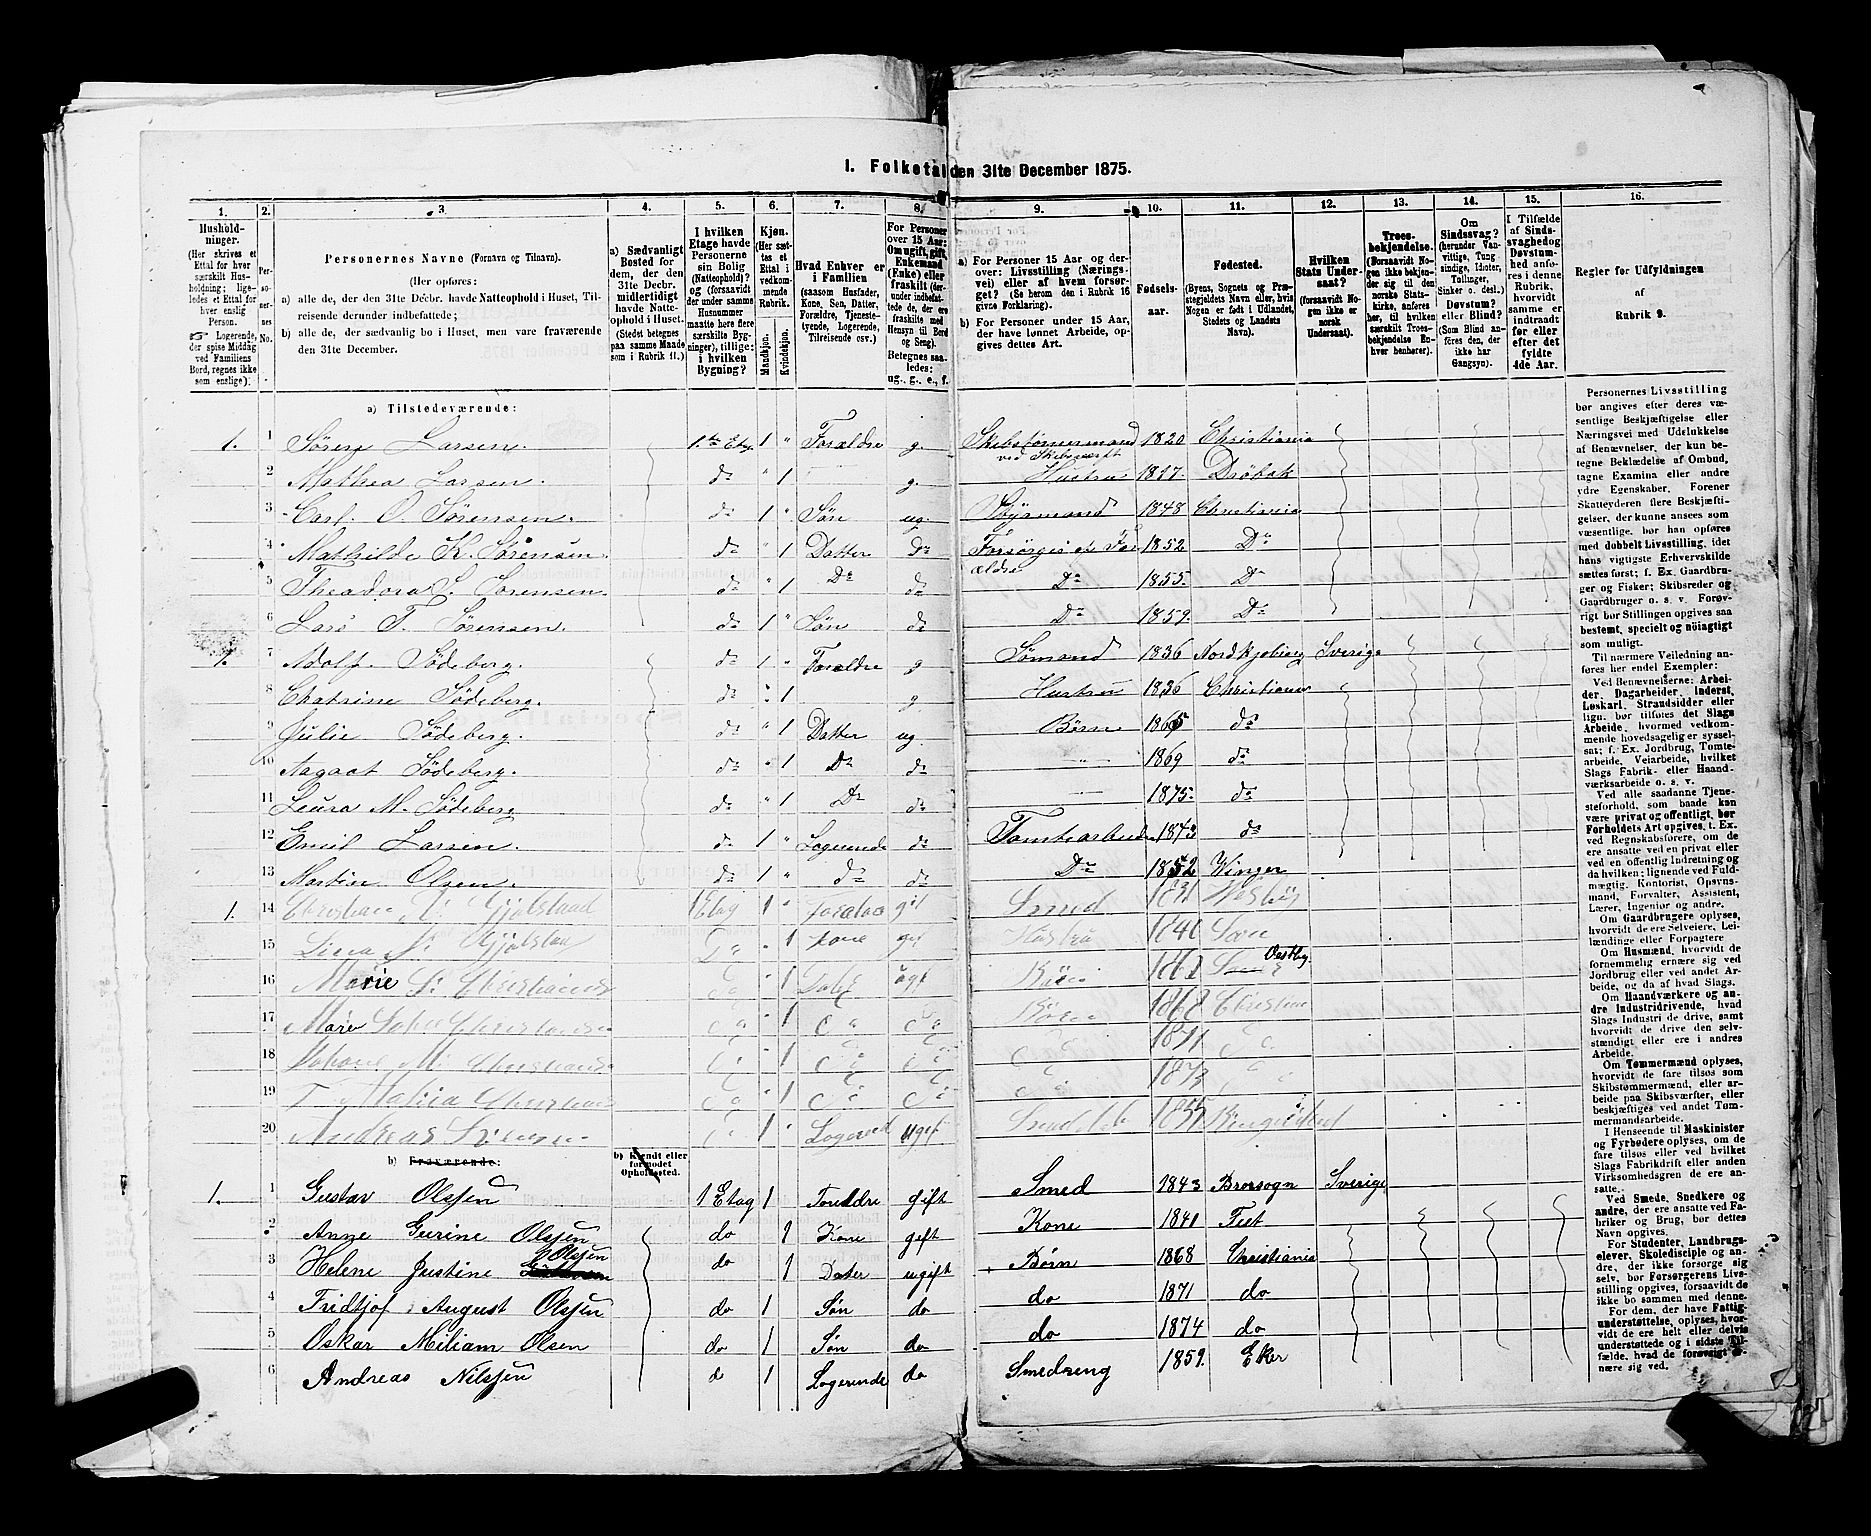 I. Folketal den 31te December 1875.
1. 2. 3. 4. 5. 6. 7. 8. 9. 10. 11. 12. 13. 14. 15. 16.
Husholdninger. (Her skrives et Ettal for hver særskilt Husholdning; ligeledes et Ettal for hver enslig Person. Logerende, der spise Middag ved Familiens Bord, regnes ikke som enslige).
Personernes No.
Personernes Navne (Fornavn og Tilnavn).
(Her opføres:
a) alle de, der den 31te Decbr. havde Natteophold i Huset, Tilreisende derunder indbefattede;
b) alle de, der sædvanlig bo i Huset, men vare fraværende den 31te December.
a) Sædvanligt Bosted for dem, der den 31te Decbr. midlertidigt havde Natteophold i Huset. (Stedet betegnes paa samme Maade som i Rubrik 11.)
I hvilken Etage havde Personerne sin Bolig (Natteophold)? (forsaavidt der under samme Husnummer maatte høre flere særskilte Bygninger), tillige: i hvilken Bygning?
Kjøn. (Her sættes et Ettal i vedkommende Rubrik. Mandkjøn. Kvindekjøn.
Hvad Enhver er i Familien (saasom Husfader, Kone, Søn, Datter, Forældre, Tjenestetyende, Logerende, Tilreisende osv.)
For Personer over 15 Aar: Om ugift, gift, Enkemand (Enke) eller fraskilt (derunder indbefattede de, der ere fraskilte med Hensyn til Bord og Seng). Betegnes saaledes: ug., g., e., f.
a) For Personer 15 Aar og derover: Livsstilling (Næringsvei) eller af hvem forsørget? (Se herom den i Rubrik 16 givne Forklaring).
b) For Personer under 15 Aar, der have lønnet Arbeide, opgives dettes Art.
Fødselsaar.
Fødested. (Byens, Sognets og Præstegjeldets Navn eller, hvis Nogen er født i Udlandet, Stedets og Landets Navn).
Hvilken Stats Undersaat? (forsaavidt Nogen ikke er norsk Undersaat).
Troesbekjendelse. (Forsaavidt Nogen ikke bekjender sig til den norske Statskirke, anføres her, til hvilken særskilt Troesbekjendelse Enhver henhører).
Om Sindssvag? (herunder Vanvittige, Tungsindige, Idioter, Tallinger, Sinker o. desl.) Døvstum? eller Blind? (Som Blind anføres den, der ikke har Gangsyn).
I Tilfælde af Sindssvaghed og Døvstumhed anføres i denne Rubrik, hvorvidt samme er indtraadt før eller efter det fyldte 4de Aar.
Regler for Udfyldningen af Rubrik 9.
a) Tilstedeværende:
1. 1 Søren Larsen. 1.te Etag 1 " Forældre g. Skibstømmermand ved Skibsværft 1820 Christiania
2 Mathea Larsen. do " 1 g. Hustru 1827 Drøbak
3 Carl. O. Sørensen. do 1 " Søn ug. Styrmand 1848 Christiania
4 Mathilde K. Sørensen. do " 1 Datter do Forsørges af Forældre 1852 Do
5 Theadora L. Sørensen do " 1 Do do Do 1855 Do
6 Lars T. Sørensen. do 1 " Søn do Do 1859. Do
1. 7 Adolf Södeberg. do 1 " Forældre g Sømand 1836 Nordkjøbing Sverige
8 Chatrine Södeberg. do " 1 g Hustru 1836 Christiania
9 Julie Södeberg. do " 1 Datter ug. Børn 1865 do
10 Aagaat Södeberg. do " 1 Do do 1869 do
11 Leura M. Södeberg do " 1 Do do 1875 do
12 Emil Larsen. do 1 " Logerende do Tomtearbeider 1843 do
13 Martin Olsen. do 1 " do do Do 1852 Vinger
1. 14 Christian Gjølstad 1 Etag 1 " gif Smed 1831
15 Lina Gjølstad Do " 1 kone gif Hustru 1840
16 Marie Christians Do " 1 Dat ugt Børn 1862 Vestby
17 Christians Do " 1 Do Do Børn 1868 Christiania
18 Christians Do " 1 Do Do Do 1871 Do
19 Christians Do " 1 Do Do Do 1873 Do
20 Andreas 1 Logerend ugif 1855
b) Fraværende: b) Kjendt eller formodet Opholdssted.
1. 1 Gustav Olssen 1 Etag 1 Foreldre gift Smed 1843 Brorsogn Sverige
2 Anne Gurine Olssen do 1 Kone gift Kone 1841 Fet
3 Helene Justine Olssen do 1 Dater ugift Børn 1868 Christiania
4 Fridtjof August Olssen do 1 Søn do do 1871 do
5 Oskar Miliam Olsen do 1 Søn do do 1874 do
6 Andreas Nilssen do 1 Logerende do Smedreng 1859. Eker
Personernes Livsstilling bør angives efter deres væsentlige Beskjæftigelse eller Næringsvei med Udelukkelse af Benævnelser, der kun betegne Beklædelse af Ombud, tagne Examina eller andre ydre Egenskaber. Forener Skatteyderen flere Beskjæftigelser, der kunne ansees som væsentlige, bør han opføres med dobbelt Livsstilling, idet hans vigtigste Erhvervskilde sættes først; f. Ex. Gaardbruger og Fisker; Skibsreder og Gaardbruger o. s. v. Forøvrigt bør Stillingen opgives saa bestemt, specielt og nöiagtigt som muligt.
Til nærmere Veiledning anføres her endel Exempler:
Ved Benævnelserne: Arbeider, Dagarbeider, Inderst, Løskarl, Strandsidder eller lign. bør tilføies det Slags Arbeide, hvormed vedkommende hovedsagelig er sysselsat; f. Ex. Jordbrug, Tomtearbeide, Veiarbeide, hvilket Slags Fabrik- eller Haandværksarbeide o. s. v.
Ved alle saadanne Tjenesteforhold, som baade kan være privat og offentligt, bør Forholdets Art opgives, t. Ex. ved Regnskabsførere, om de ere ansatte ved en privat eller ved en offentlig Indretning og da hvilken; lignende ved Fuldmægtig, Kontorist, Opsynsmand, Forvalter, Assistent, Lærer, Ingeniør og andre.
Om Gaardbrugere oplyses, hvorvidt de ere Selveiere, Leilændinge eller Forpagtere
Om Husmænd, hvorvidt de fornemmelig ernære sig ved Jordbrug eller ved andet Arbeide, og da af hvad Slags.
Om Haandværkere og andre Industridrivende, hvad Slags Industri de drive, samt hvorvidt de drive den selvstændigt eller ere i andres Arbeide.
Om Tømmermænd oplyses, hvorvidt de fare tilsøs som Skibstømmermænd, eller arbeide paa Skibsværfter, eller beskjæftiges ved andet Tømmermandsarbeide.
I Henseende til Maskinister og Fyrbødere oplyses, om de fare tilsøs eller ved hvilket Slags Fabrikdrift eller anden Virksomhedsgren de ere ansatte.
Ved Smede, Snedkere og andre, der ere ansatte ved Fabriker og Brug, bør dettes Navn opgives.
For Studenter, Landbrugselever, Skoledisciple og andre, der ikke forsørge sig selv, bør Forsørgerens Livsstilling opgives, forsaavidt de ikke bo sammen med denne.
For dem, der have Fattigunderstøttelse, oplyses, hvorvidt de ere helt eller delvis understøttede og i sidste Tilfælde, hvad de forøvrigt ernære sig ved.